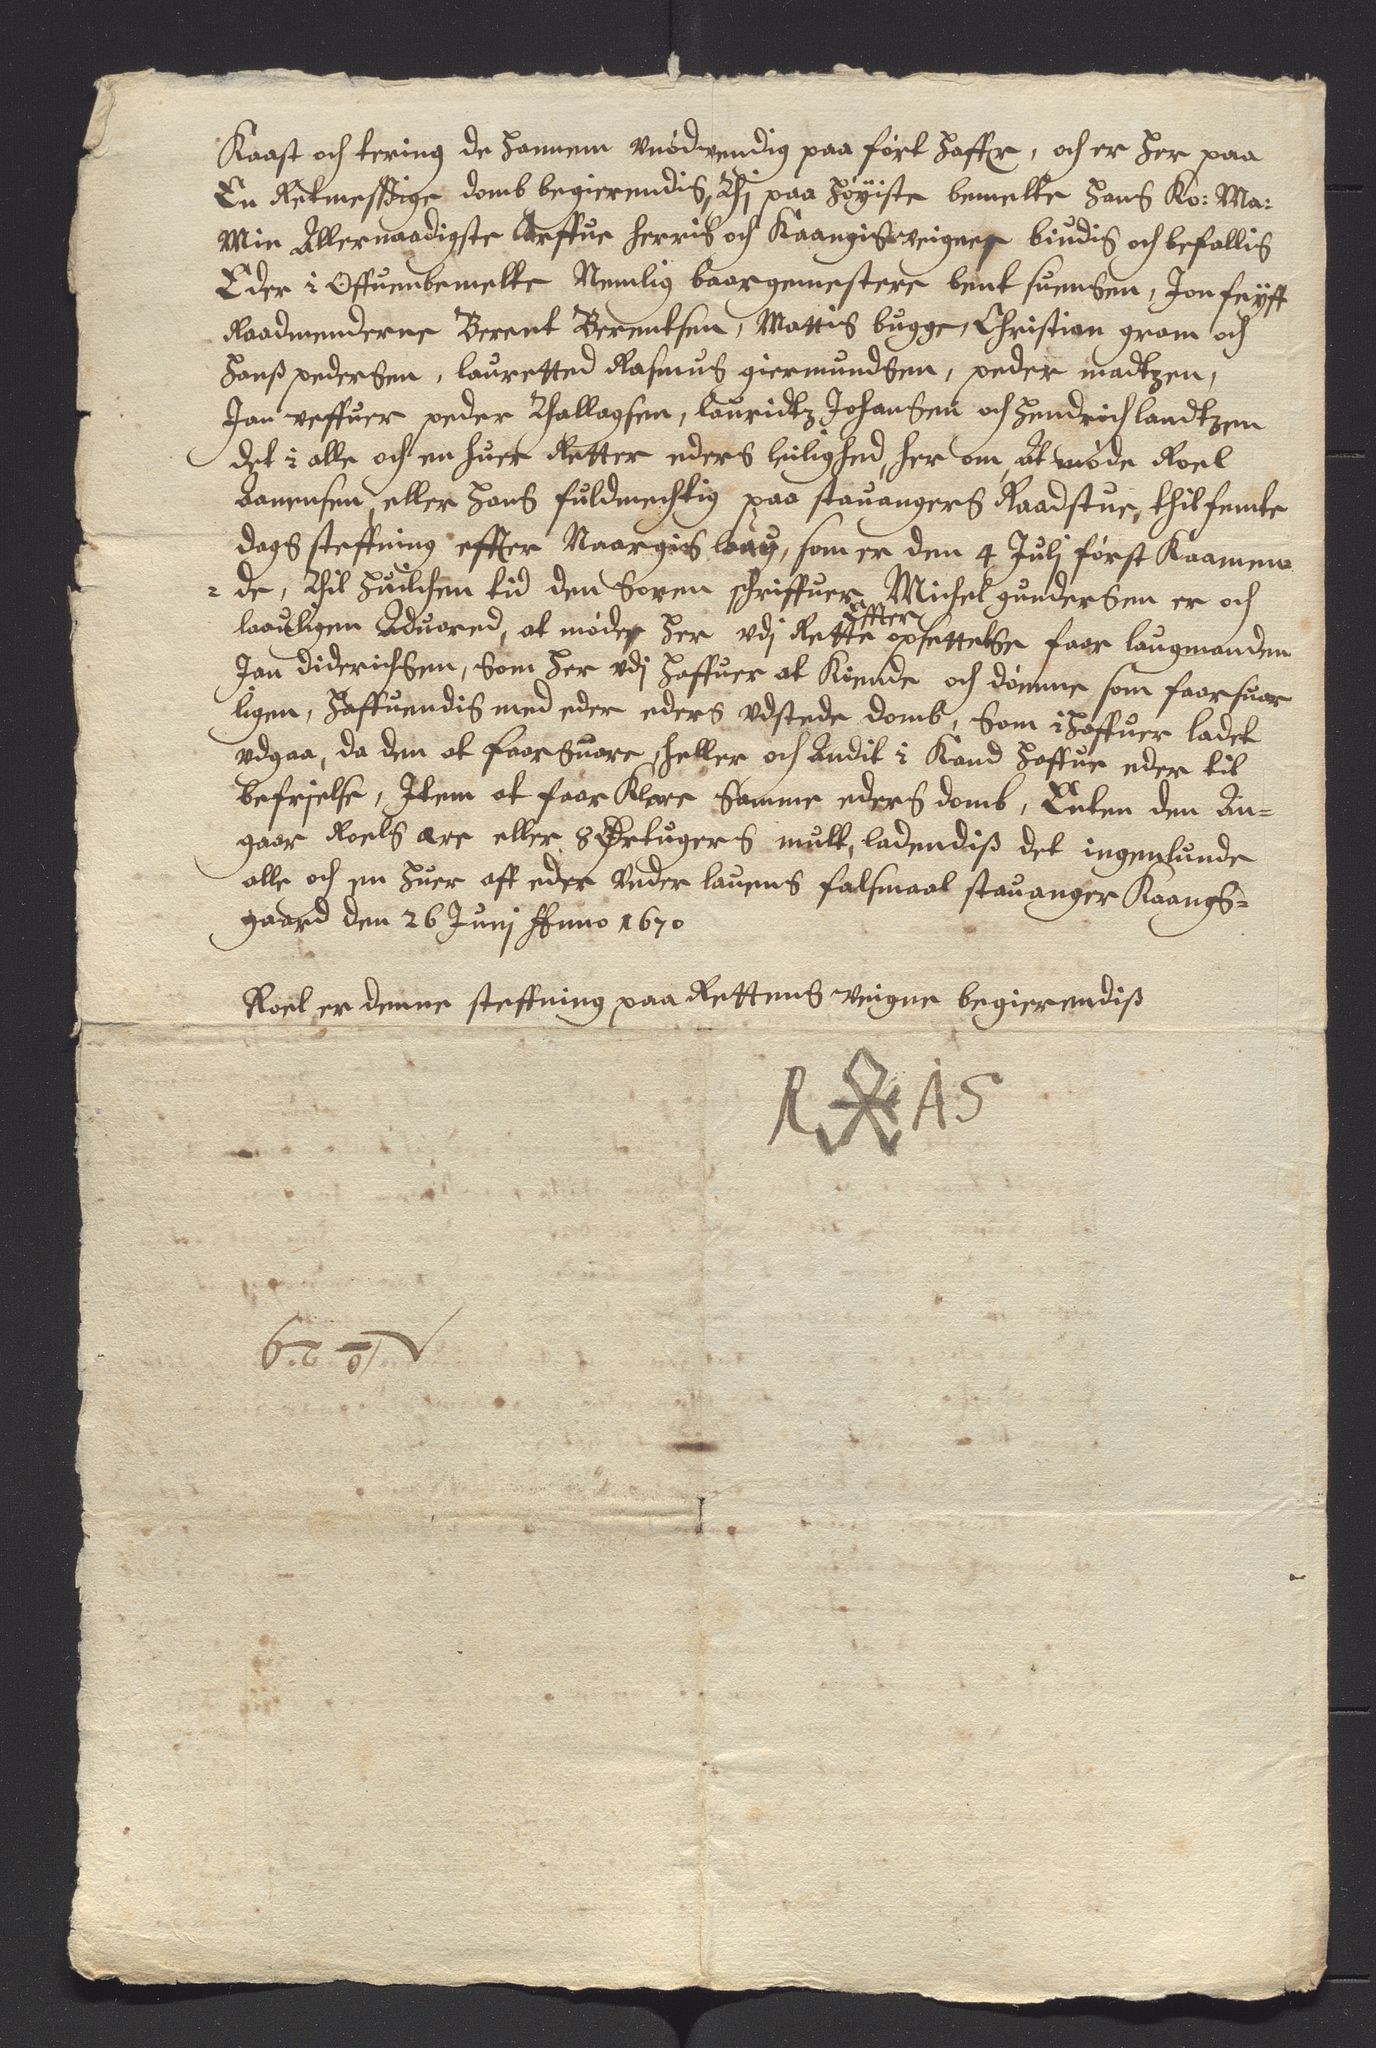 Kaast och tering de hannem vnødvendig paa ført haffr, och er her paa
En Retmessige domb begierendis, Thj paa høyiste bemelte Hans Ko: Ma:
Min Allernaadigste Arffue herris och Kaangis veigne biudis och befallis
Eder i Offuenbemelte Nemlig baargemestere bent suensen, Jon feyff
Raadmenderne Berent Berentsen, Mattis bugge, Christian gram och
Hanß pedersen, lauretted Rasmus giermundsen, peder madtzen,
Jan veffuer peder Thallagsen, lauridtz Johansen och Hendrich laudtzen
det i alle och en huer Retter eders leilighed, her om At møde Roel
Aanensen, eller hans fuldmechtig paa stauangers Raadstue, thil femte
dags steffning effter Naargis lauu, som er den 4 Julj først Kaamen-
-de, Thil huilchen tid den Soren schriffuer Michel gundersen er och
laauligen Aduared, at møde her vdj Rette Effter opsettelse faar laugmanden
Jan diderichsen, Som her vdj haffuer at Kiende och dømme som faarsuar
ligen, haffuendis med eder eders vdstede domb, Som i haffuer ladet
vdgaa, da den at faarsuare, heller och Andit i Kand haffue eder til
befrielse, Item at faar Klare Samme eders domb, Enten den An-
gaar Roels ære eller 8 Ørtugers mult, ladendiß det ingenlunde
alle och en huer aff eder Vnder lauens falsmaal stauanger Kaangs-
gaard den 26 Junij Anno 1670
Roel er denne steffning paa Rettens Veigne begierendiß
R AS